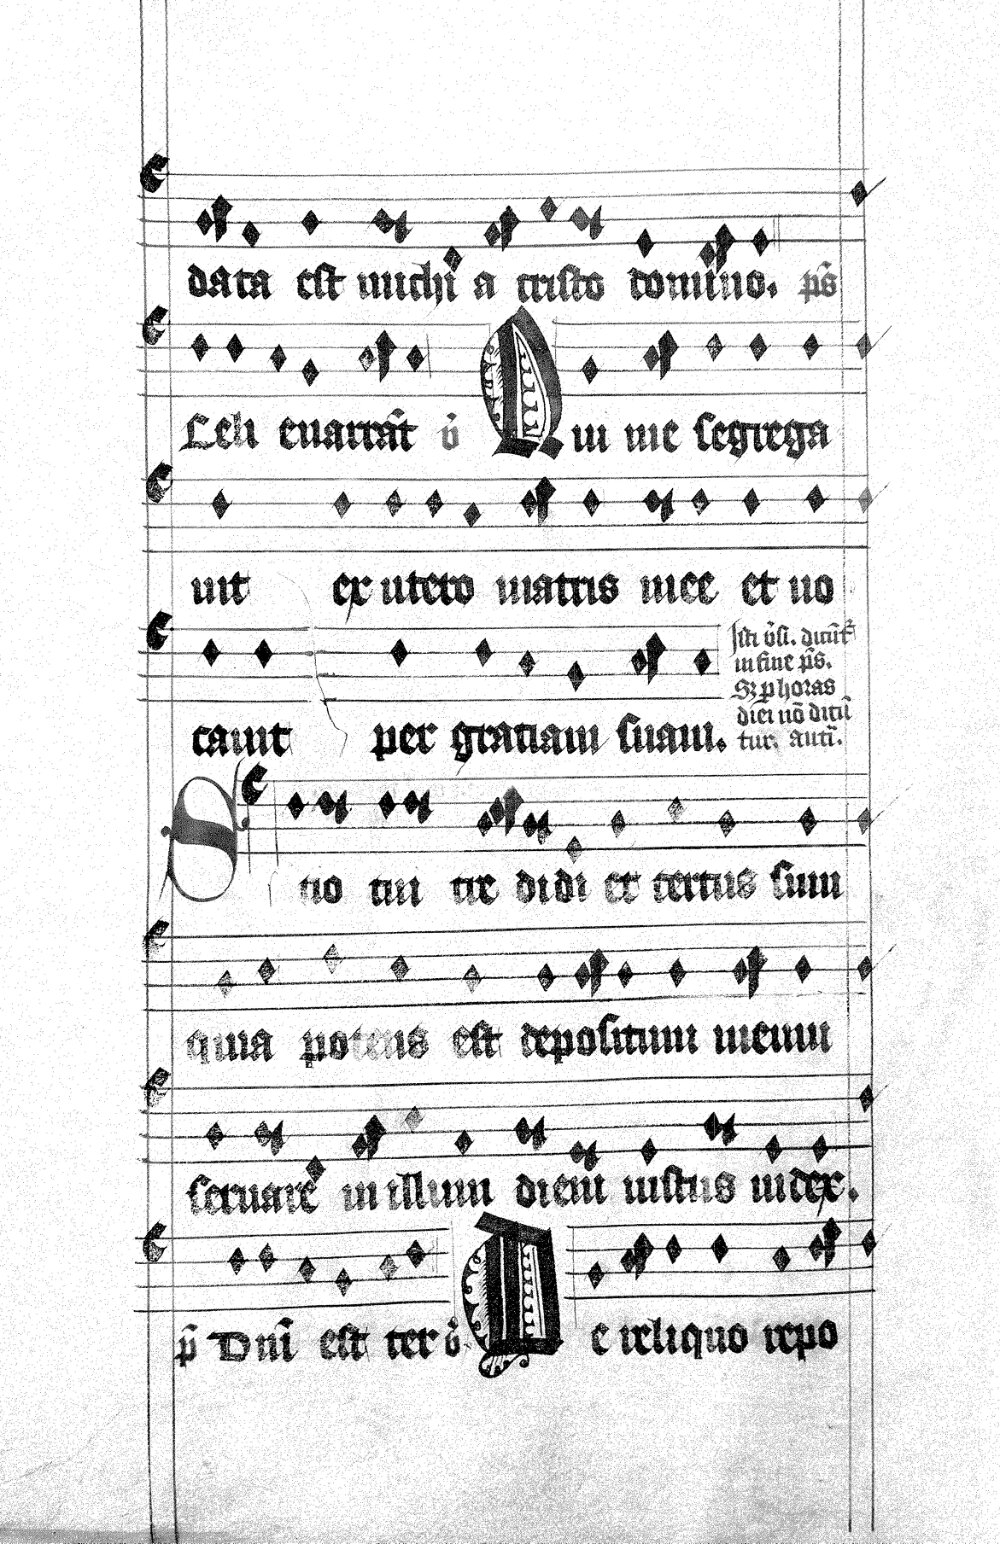 data est michi a cristo domino. ps̄
Celi enarrāt v̄ Qui me segrega
uit ex utero matris mee et uo
cauit per gratiam suam.
Isti v̄si. dicūt᷑
in fine ps̄.
Sꝫ ꝑ horas
diei nō dicū
tur. antī.
Scio cui cre didi et certus sum
quia potens est depositum meum
seruare in illum diem iustus iudex.
p̄ Dnī est ter v̄. De reliquo repo